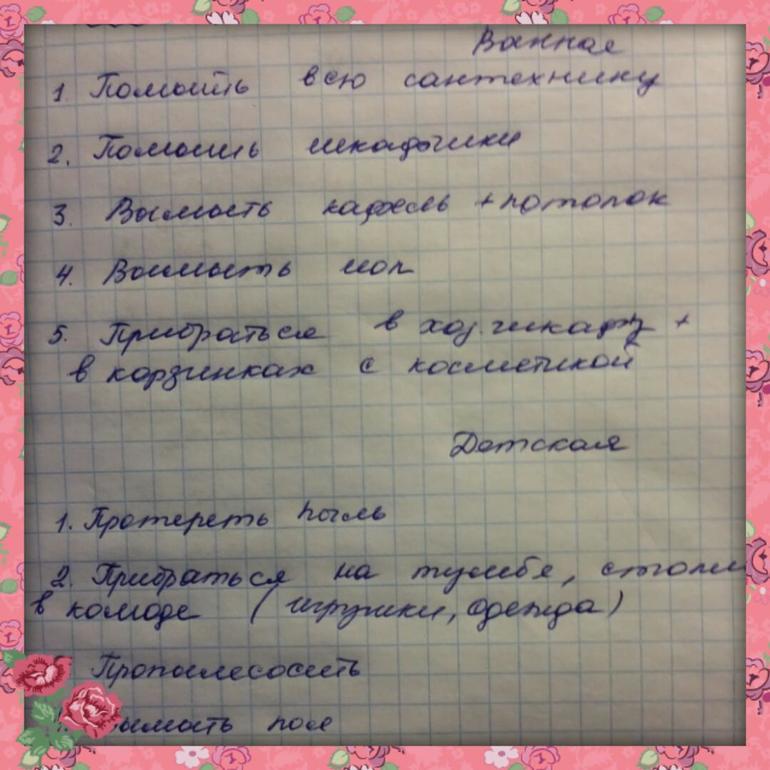 Ванная
1. Помыть всю сантехнику
2. Помыть шкафчики
3. Вымыть кафель + потолок
4. Вымыть пол
5. Прибраться в хоз. шкафу +
в корзинках с косметикой
Детская
1. Протереть пыль
2. Прибраться на тумбе,
в комоде (игрушки, одежда)
Пропылесосить